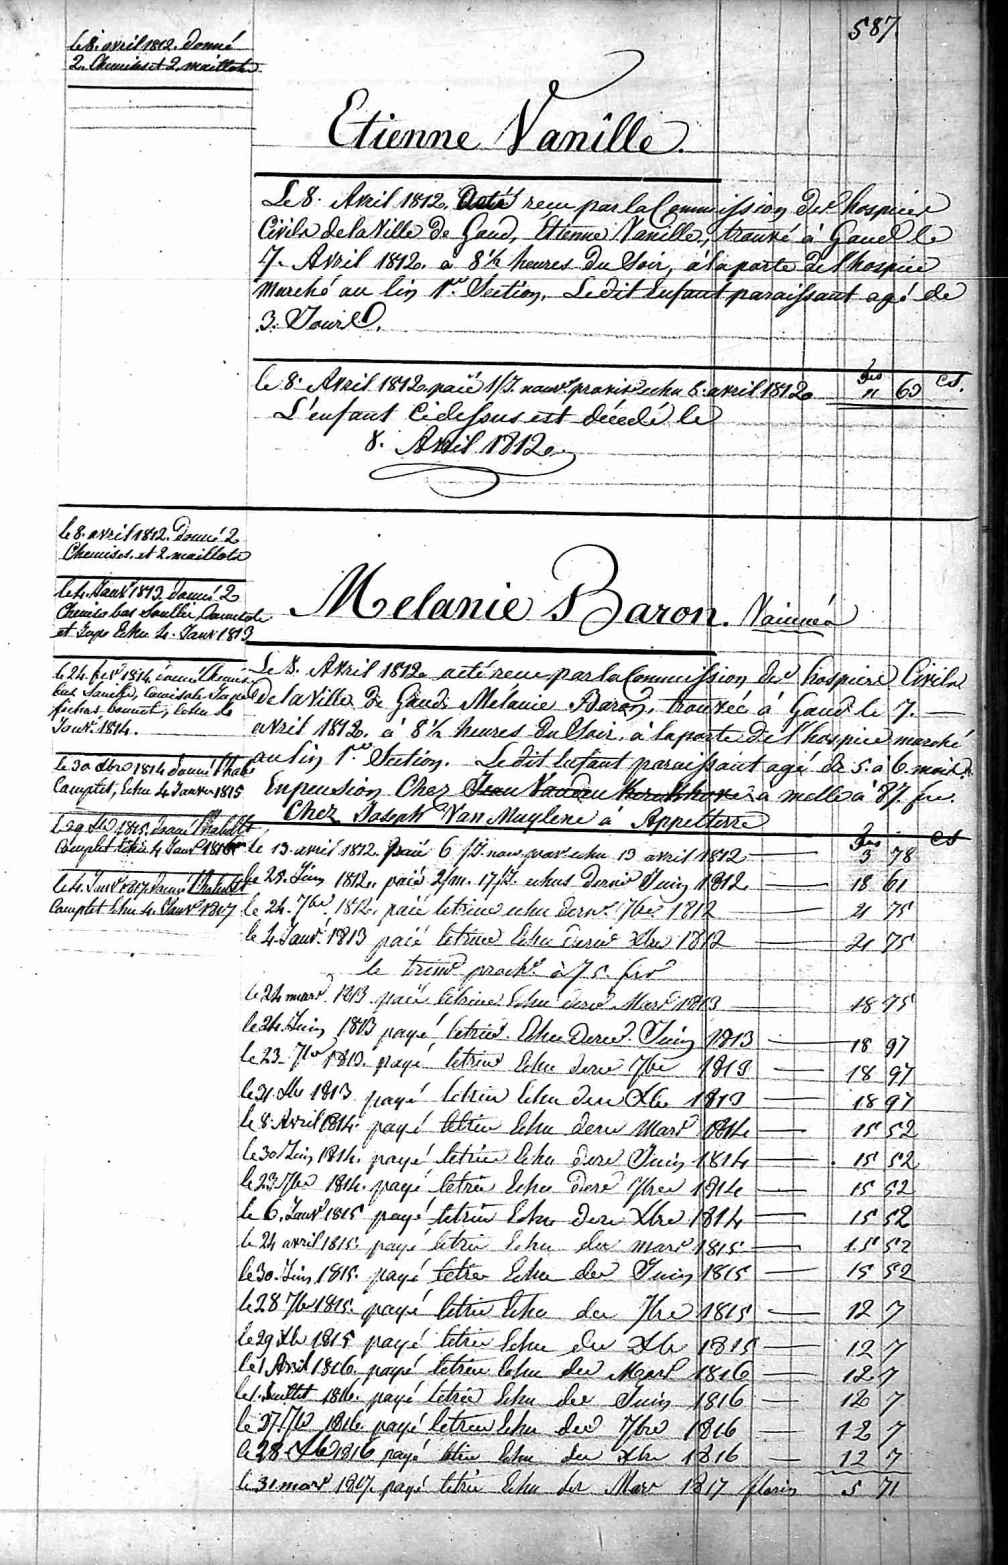 587
le 8. avril 1812. donné
2. Chemises et 2. maillots
Etienne Vanille.
Le 8. Avril 1812. a été recu par la Commission des hospices
Civils de la Ville de Gand, Etienne Vanille, trouvé à Gand le
7. Avril 1812. à 8½ heures du Soir, à la porte de l'hospice
marché au lin 1re. Section. Ledit Enfant paraissant agé de
3. Jours.
le 8. Avril 1812 paié 1/J. nourr. provis. echu 8. avril 1812 frs 11 63 Cs.
L'enfant Ci dessus est décédé le
8. Avril 1812.
le 8. avril 1812. Donné 2
Chemises et 2 maillots
le 4. Janvr 1813 donné 2
Chemises bas Soullier, Camisole
et Jupe Echu 4. Janvr 1813
Melanie Baron. Vaccinée
le 24. fevr 1814 donné Chemise
bas Soulier, Camisole Jupe
fichus bonnet, Echu le
Janvr. 1814.
le 30 Xbre 1814 donné l'hab.
Complet, Echu 4 Janvr 1815
le 29 Xbr 1815. donné l'habilt
Complet Echu 4 Janvr 1816
le 4. Janvr 1817 donné l'habilt
Complet Echu 4. Janvr 1817
Le 8. Avril 1812. a été recu par la Commission des hospices Civils
de la Ville de Gand Mélanie Baron, trouvée à Gand le 7.
avril 1812. à 8½ heures du Soir, à la porte de l'hospice marché
au lin 1re Section. Ledit Enfant paraissant agé de 5. à 6. mois.
En pension Chez Jean Vanden Kerckhove à melle à 87. frs.
Chez Joseph Van Muylene à Appelterre
frs Cs
le 13. avril 1812. paié 6 /J. nourr. prov. echu 13 avril 1812 — 3 78
le 28. Juin 1812. paié 2/m. 17/J. echus dernier Juin 1812 — 18 61
le 24. 7bre. 1812. paié le trim echu dernr. 7bre 1812 — 21 75
le 4. Janvr. 1813 paié le trim Echu dernier Xbre 1812 — 21 75
le trimr prochn. à 75. frs
le 24 mars 1813 paié le trim Echu dernr Mars 1813 — 18 75
le 24 Juin 1813 payé le trim. Echu dernr. Juin 1813 — 18 97
le 23. 7br 1813. payé le trim Echu dernr 7bre 1813 — 18 97
le 31 Xbr 1813 payé le trim Echu dern Xbr 1813 — 18 97
le 8. Avril 1814. payé le trim Echu dern Mars 1814 — 15 52
le 30 Juin 1814. payé le trim Echu dern Juin 1814 — 15 52
le 23 7br 1814. payé le trim Echu dern 7bre 1814 — 15 52
le 6. Janvr 1815 payé le trim Echu dern Xbre 1814 — 15 52
le 24 avril 1815. payé le trim Echu der mars 1815 — 15 52
le 30. Juin 1815. payé le trim Echu der Juin 1815 — 15 52
le 28 7br 1815. payé le trim Echu der 7bre 1815 — 12 7
le 29 Xbr 1815 payé le trim Echu der Xbr 1815 — 12 7
le 1 Avril 1816. payé le trim Echu der Mars 1816 — 12 7
le 1. Juillet 1816. payé le trim Echu der Juin 1816 — 12 7
le 27 7br 1816. payé le trim Echu der 7bre 1816 — 12 7
le 28 Xbr 1816 payé le trim Echu der Xbre 1816 — 12 7
le 31 mars 1817. payé le trim Echu der Mars 1817 florins — 5 71